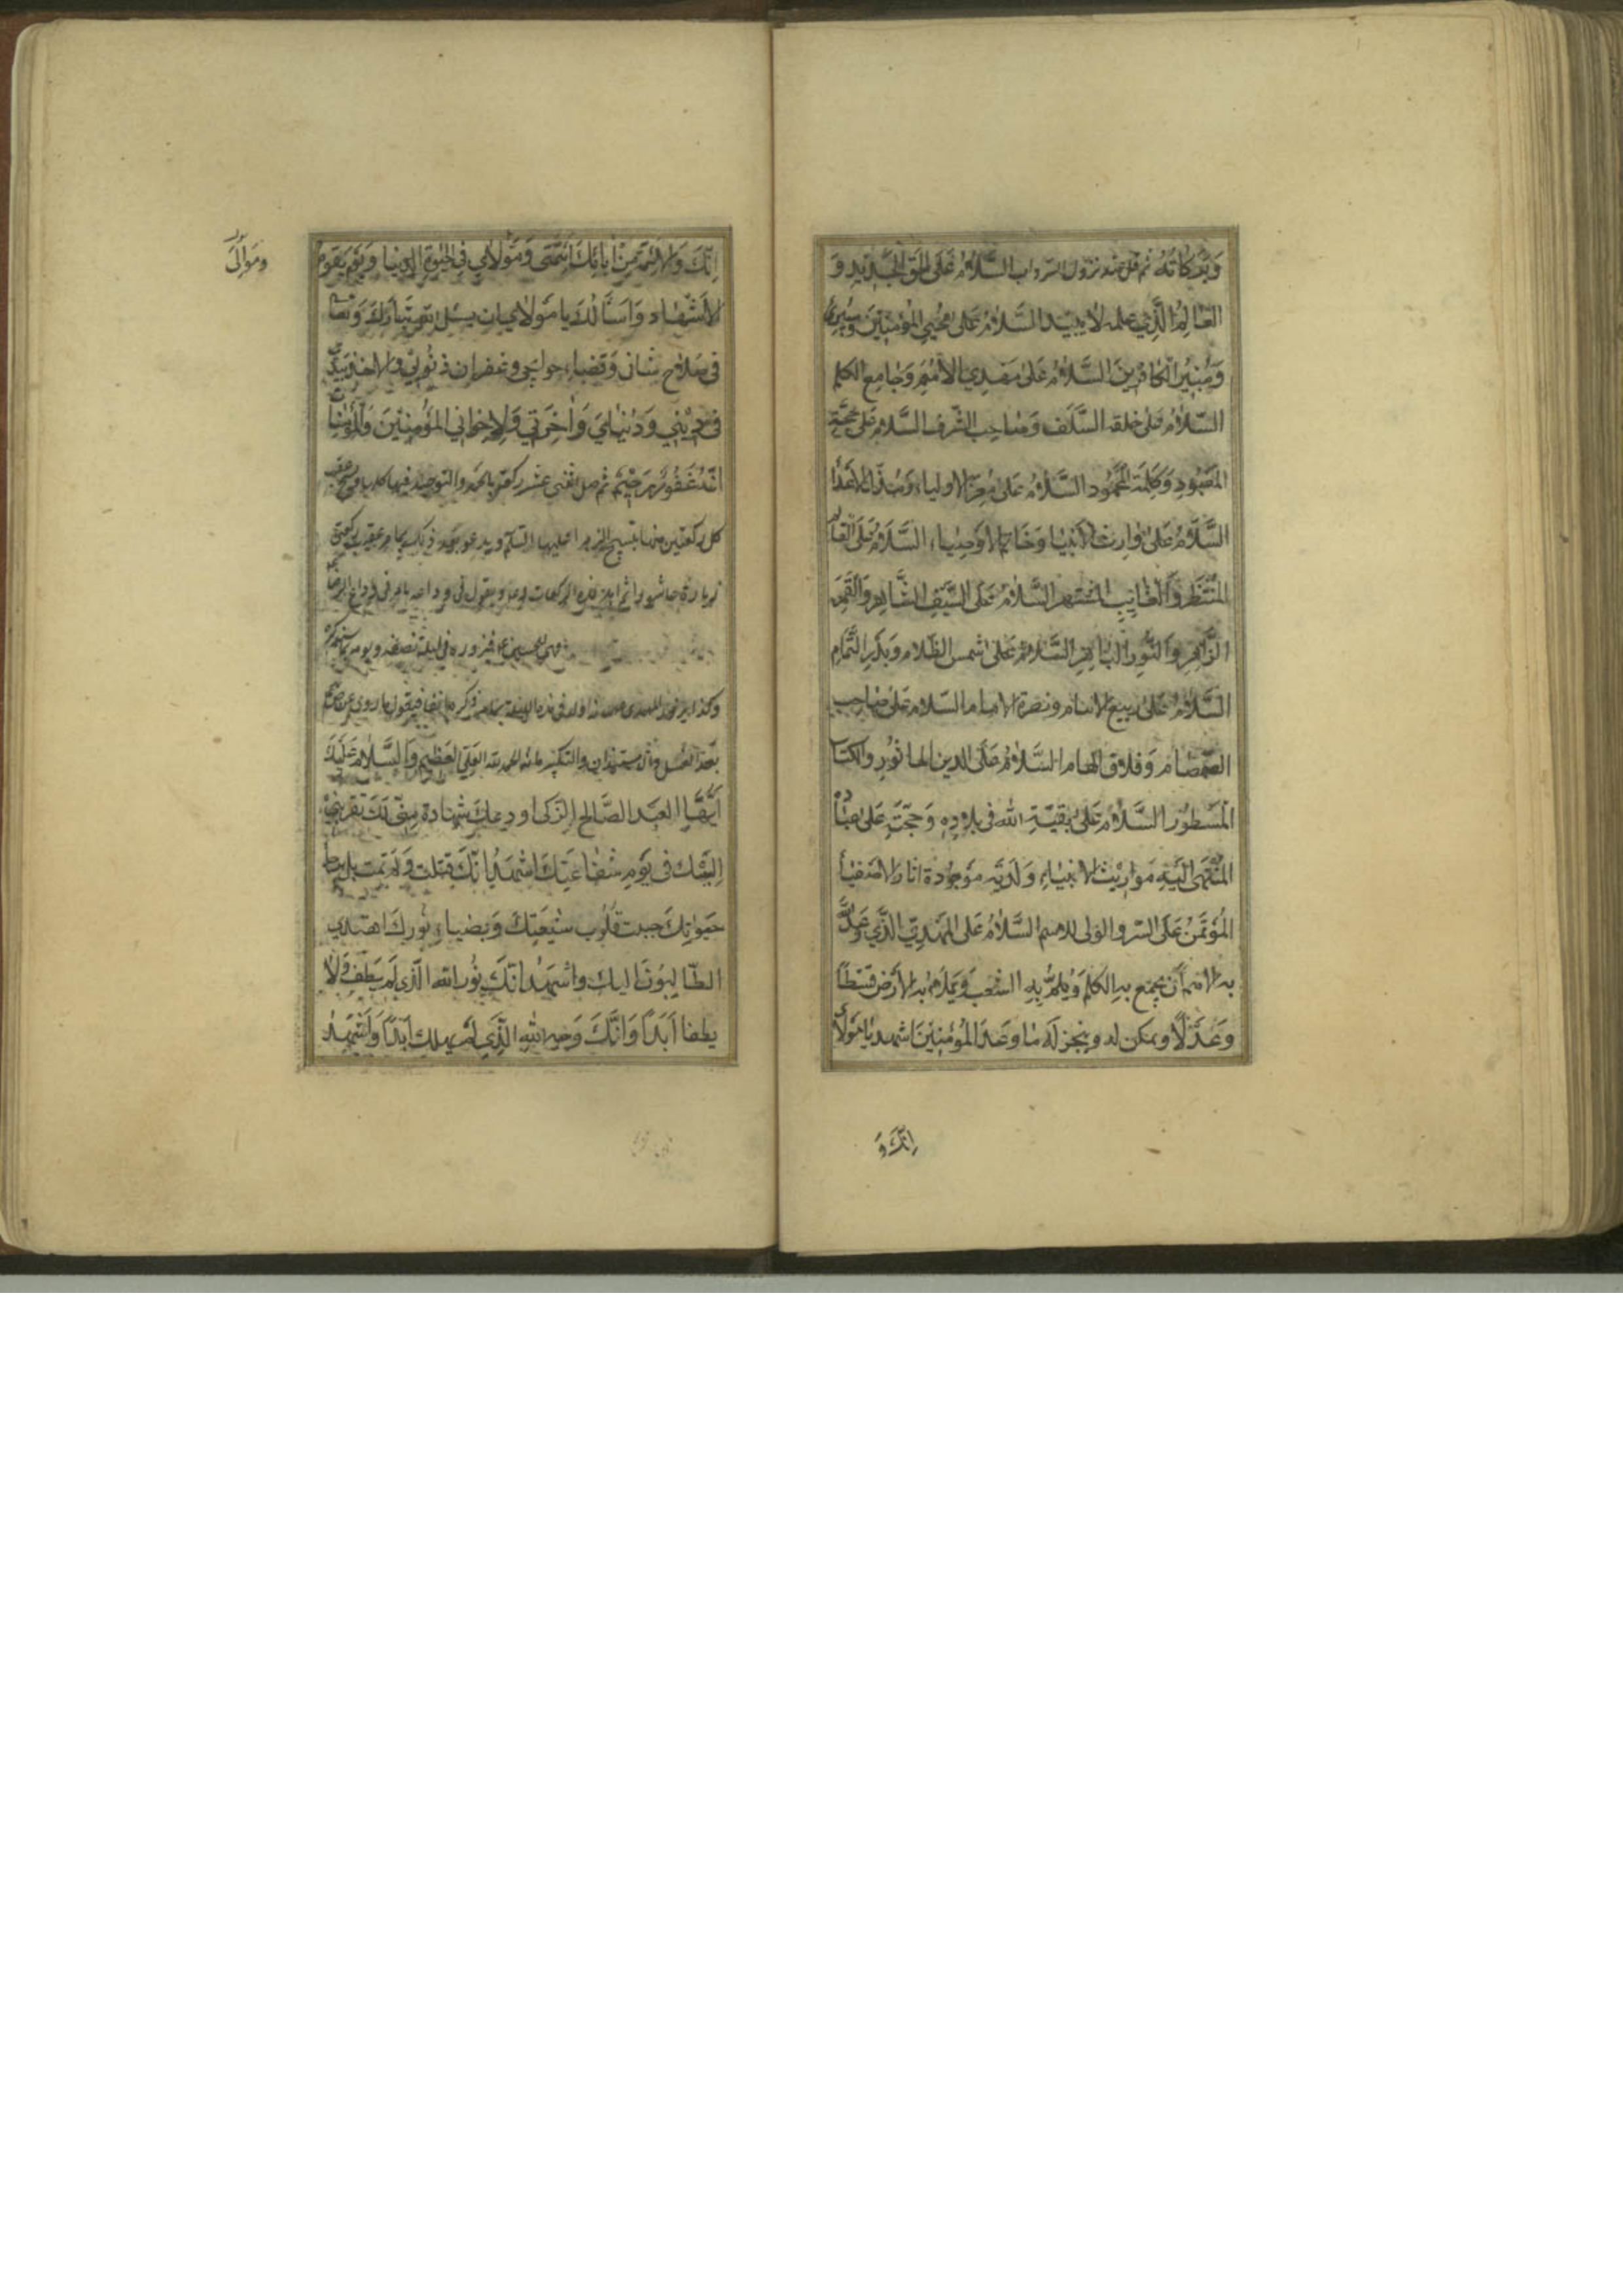 وَبَرَكَاتُهُ ثم قل عند نزول السرداب السَّلَامُ عَلَى الحَقِّ الجَدِيدِ وَ
العَالِمِ الَّذِي علمه لا يبيد السَّلَامُ عَلى مُحْيِي المُؤمِنِينَ
وَمُبِيرِ الكَافِرِينَ السَّلَامُ عَلىٰ مَهْدِيِّ الأُمَمِ وَجَامِعِ الكلم
السَّلَامُ عَلى خلف السَّلَفِ وَصَاحِب الشَّرف السَّلَام عَلى حُجَّةِ
المَعْبُودِ وَكَلِمَة المَحمُود السَّلَامُ عَلى مُعِزّ الاولياء وَمُذِلِّ الاعْدَا
السَّلَامُ عَلىٰ وَارِثِ الانبِيَا وَخَاتم الاوصِياء السَّلَامُ عَلَى القَائم
المُنْتَظَر وَالغَايِبِ المشتهر السَّلَامُ عَلَى السَّيْفِ الشَّاهِرِ وَالقَمَرِ
الزَّاهِرِ وَالنُّورِ البَاهِرِ السَّلَامُ عَلىٰ شمس الظّلام وَبَدْرِ التَّمَامِ
السَّلَامُ عَلىٰ ربيع الانام ونضرة الايام السَّلام عَلىٰ صَاحِبِ
الصَّمْصَام وَفَلاق الهام السَّلَامُ عَلَى الدين المأثُور والكتَاب
المَسْطُور السَّلَامُ عَلىٰ بَقِيَّةِ الله في بِلادِه وَحُجَّتِهِ عَلىٰ عِبَادِه
المُنْتَهى اِلَيْهِ مَوارِيث الانبيَاءِ وَلَدَيْهِ مَوجُودة اثار الاصْفِيَا
المُؤتَمَنُ عَلَى السّر والولى للامر السَّلَامُ عَلى المَهْدِيّ الَّذِي وَعَدَ اللهُ
به الامم اَن يجمَع بهِ الكلمَ وَيَلُمَّ بِهِ الشعَث وَيَملَأ بهِ الارض قِسْطًا
وَعَدْلًا ويمكن له وينجز لَهُ مَا وعَدَ المُؤمِنِينَ اشهد يَا مَوْلَايَ
اِنَّكَ وَ
اِنَّكَ وَالائمَّة مِنْ ابَائِكَ اَئِمَّتِى وَمَوَالِيَّ فِي الحَيٰوةِ الدنيا وَيَوْمَ يَقُوم
وَمَوَالِيَّ
الاَشْهَاد وَاَسْأَلُكَ يَا مَوْلَايَ ان تسئل الله تَبَارَكَ وَتعَالى
فى صَلَاح شَانى وَقَضَاء حوايجى وغفران ذنُوبى والاخذ بيدى
فى دِيْنِي وَدُنْيَايَ وَاٰخِرَتِي وَلِاِخْوَانِي المُؤمِنِيْنَ وَالْمُؤمِنَات
انَّهُ غَفُورٌ رَحِيْمٌ ثم صل اثنى عشر ركعة بالحمد والتوحيد فيها كلها وسبح عقيب
كل ركعتين منها تسبيح الزهرا عليها السلام
زيارة عاشورا
بَعد الغسل والتكبير مائه الحمد لله العَلِيّ العَظِيْمِ وَالسَّلَامُ عَلَيْكَ
اَيُّهَا العَبد الصَّالح الزَّكى اودعك شهَادة مِنّى لَكَ تقربني
اِلَيْك فى يَوْمِ شَفَاعَتِكَ اشْهَدُ انَّكَ قُتِلت وَلَم تمت بل برجاء
حَيٰوتِكَ حييت قُلُوب شِيْعَتِكَ وَبضياء نُورِكَ اهتدى
الطّالِبُونَ اليك واشهَد انّكَ نُور الله الَّذِي لَم يَطف وَلَا
يطفا اَبَدًا وَاِنَّكَ وَجه اللهِ الَّذِي لَم يهلك اَبَدًا وَاَشْهَد